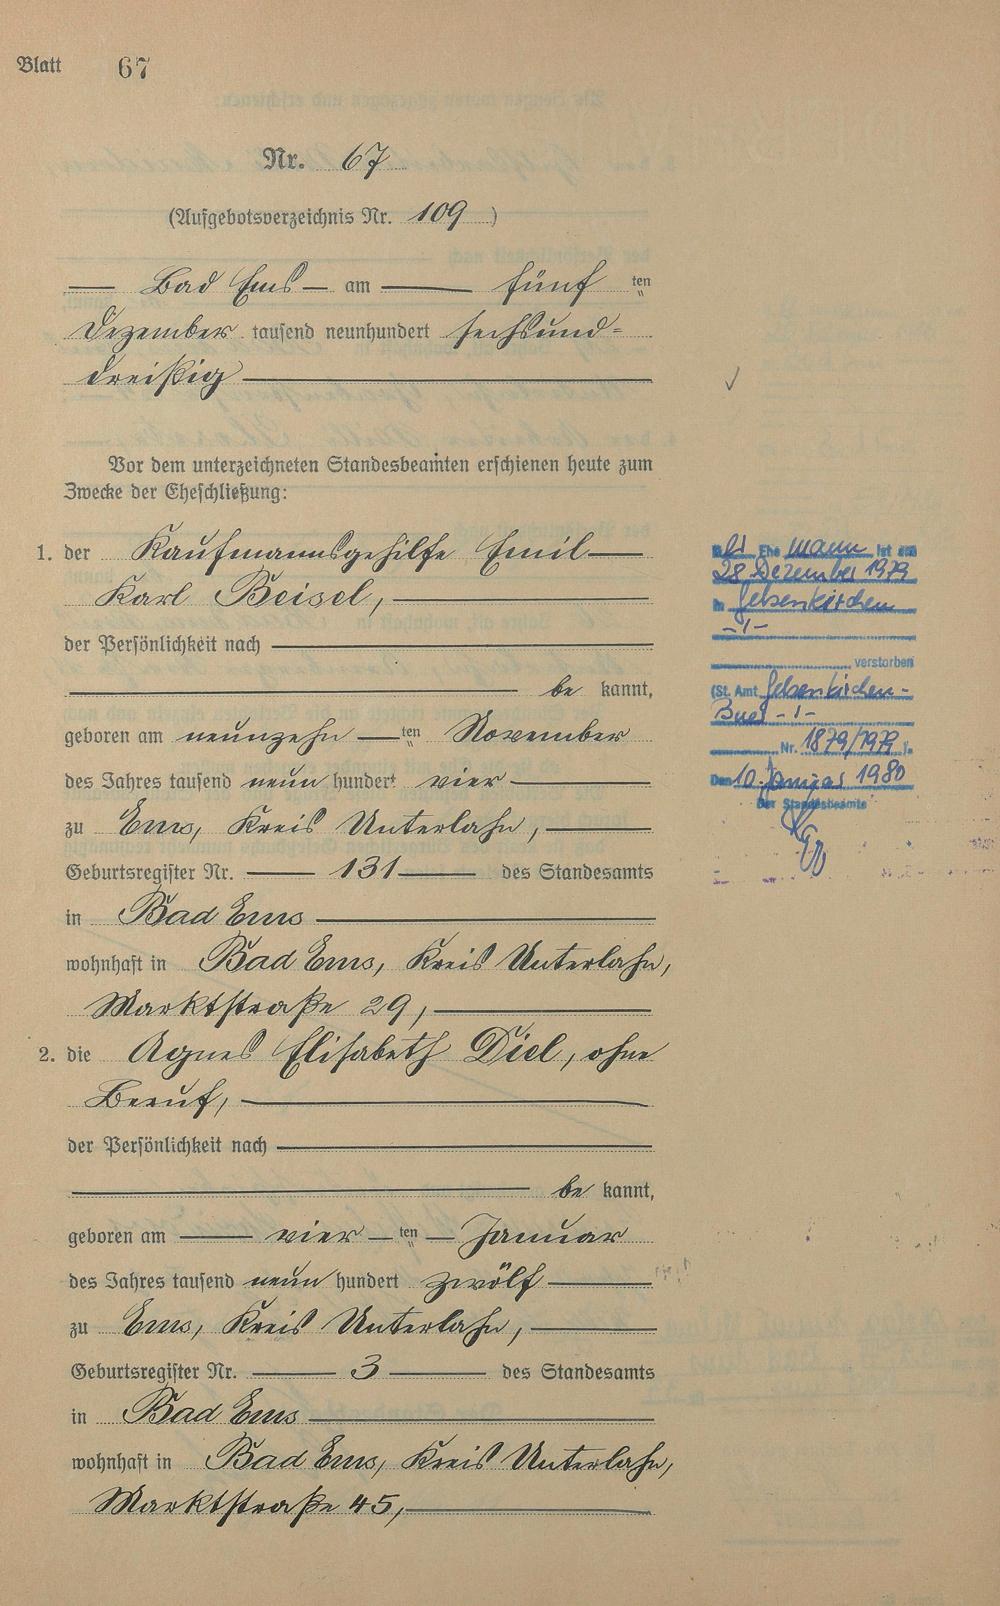 Blatt 67
Nr. 67
(Aufgebotsverzeichnis Nr. 109)
Bad Ems am fünf ten
Dezember tausend neunhundert sechsund=
dreißig
Vor dem unterzeichneten Standesbeamten erschienen heute zum
Zwecke der Eheschließung:
1. der Kaufmannsgehilfe Emil
Karl Beisel,
der Persönlichkeit nach
be kannt,
geboren am neunzehn ten November
des Jahres tausend neun hundert vier
zu Ems, Kreis Unterlahn,
Geburtsregister Nr. 131 des Standesamts
in Bad Ems
wohnhaft in Bad Ems, Kreis Unterlahn,
Marktstraße 29,
2. die Agnes Elisabeth Diel, ohne
Beruf,
der Persönlichkeit nach
be kannt,
geboren am vier ten Januar
des Jahres tausend neun hundert zwölf
zu Ems, Kreis Unterlahn,
Geburtsregister Nr. 3 des Standesamts
in Bad Ems
wohnhaft in Bad Ems, Kreis Unterlahn,
Marktstraße 45,
Ehe mann ist am
28 Dezember 1979
in Gelsenkirchen
-1-
verstorben
(St. Amt Gelsenkirchen-
Buer -1-
Nr. 1879/1979).
Den 10. Januar 1980
Der Standesbeamte